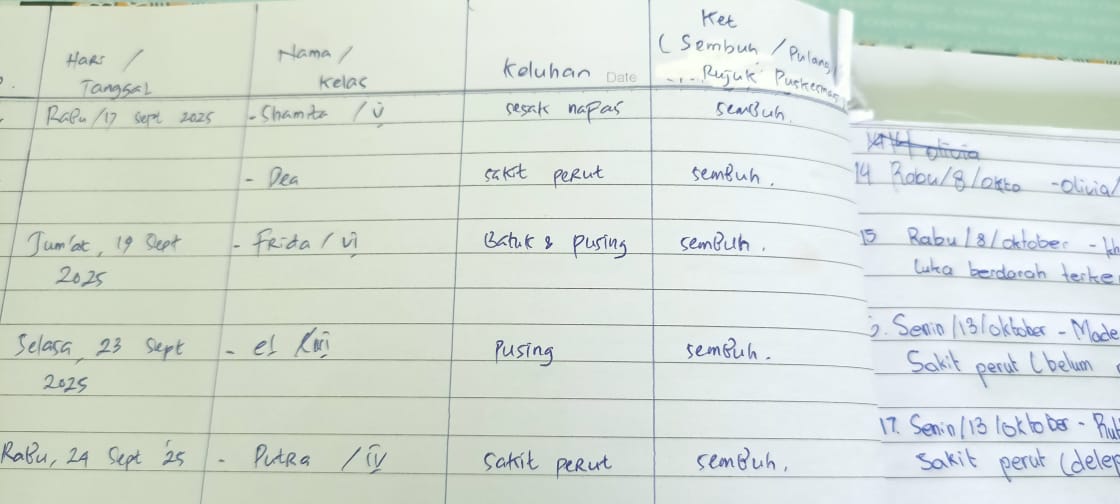 Hari / Tanggal
Nama / Kelas
Keluhan Date
Ket (Sembuh / Pulang / Rujuk Puskesmas
Rabu/17 Sept 2025 - Shamita / V sesak napas sembuh.
- Dea sakit perut sembuh.
Jum'at, 19 Sept 2025 - Frida / VI Batuk & pusing sembuh.
Selasa, 23 Sept 2025 - el pusing sembuh.
Rabu, 24 Sept '25 - Putra / IV sakit perut sembuh.
olivia
14 Rabu/8/okto -olivia/
15 Rabu/8/oktober -
luka berdarah terke
Senin/13/oktober - Made
Sakit perut (belum
17. Senin/13/oktober -
Sakit perut (